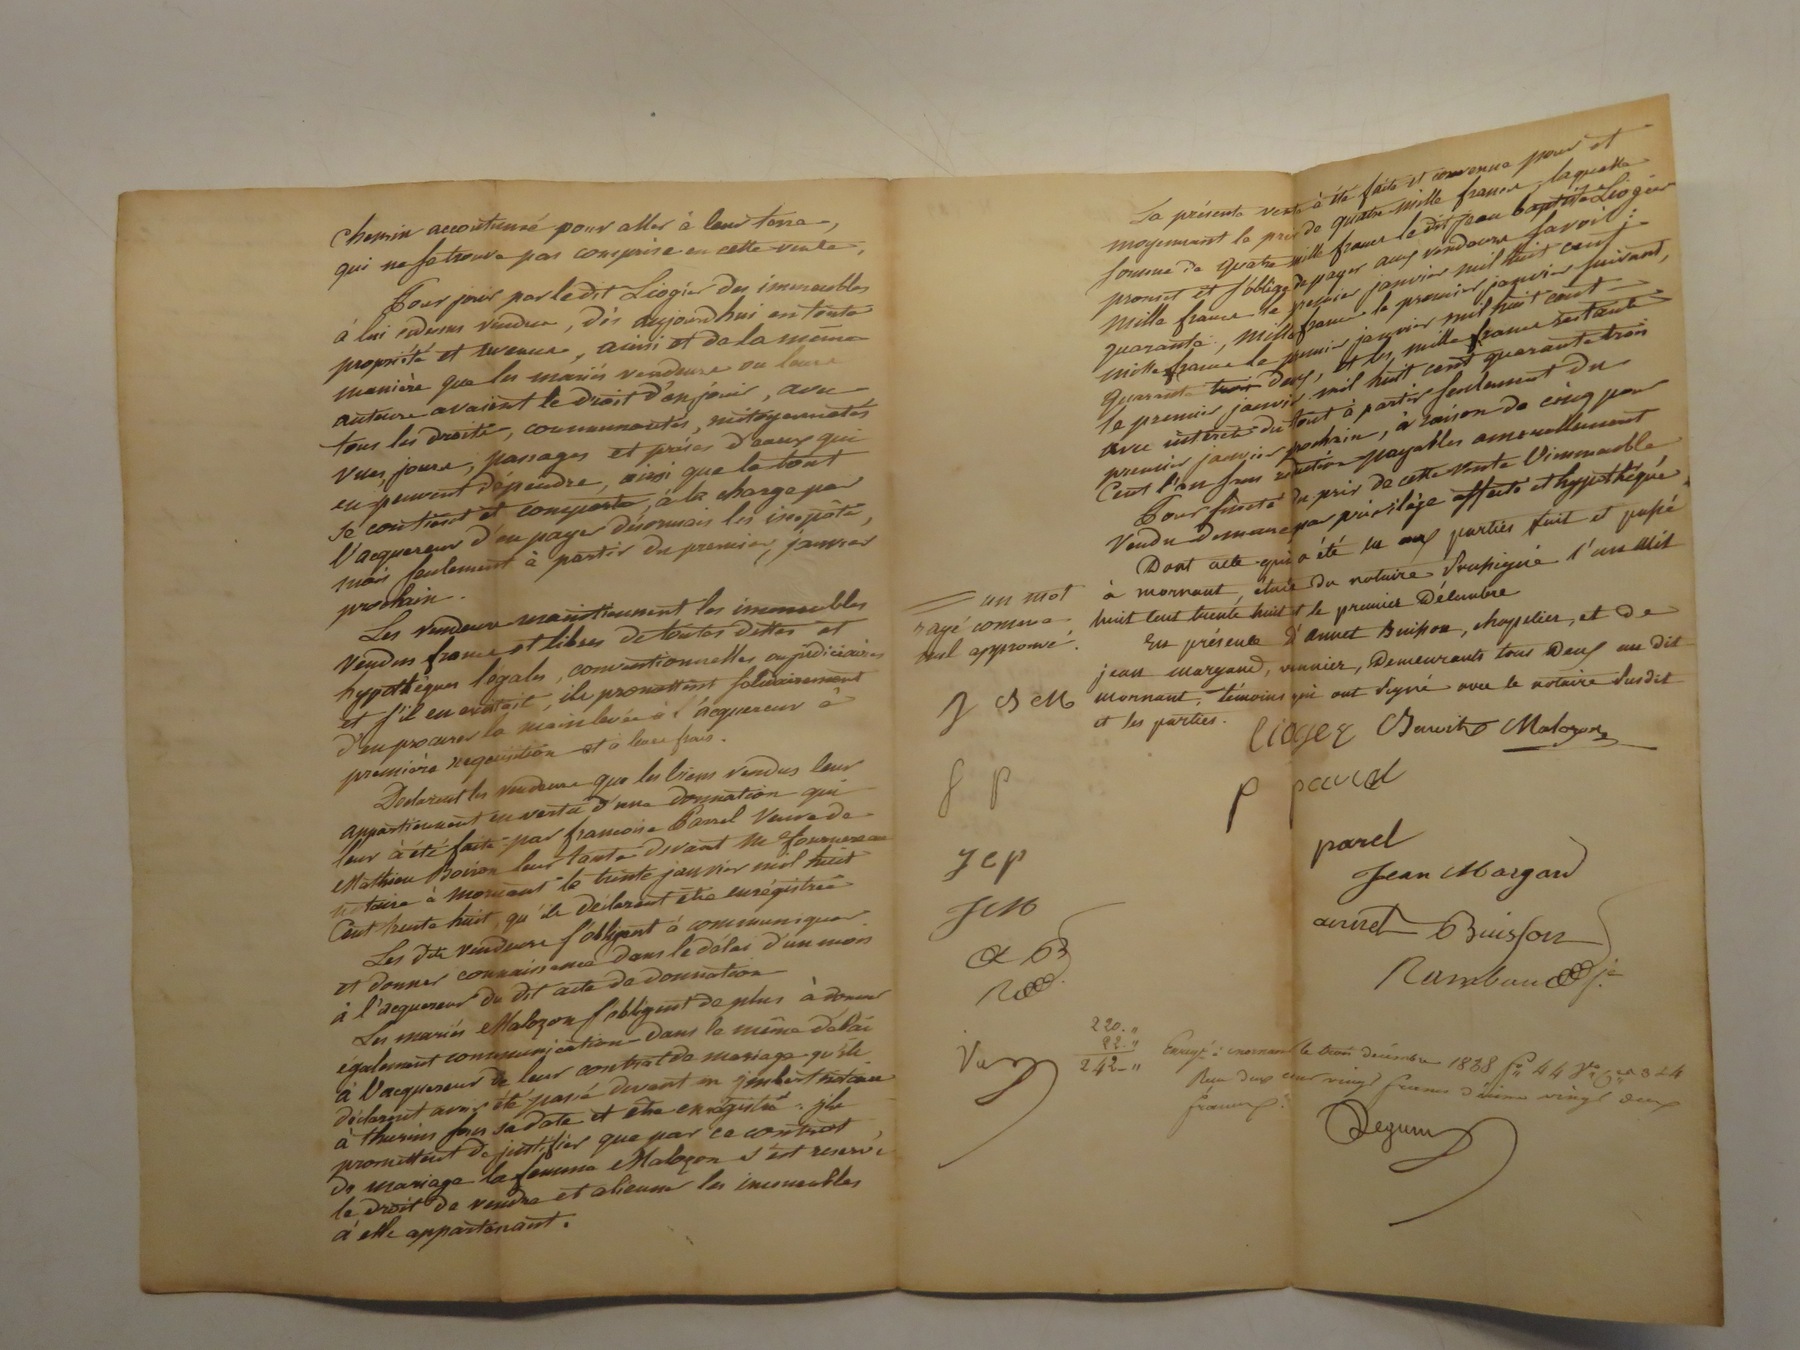 chemin accoutumé pour aller à leur terre,
qui ne se trouve pas comprise en cette vente.
Pour jouir par le dit Liogier des immeubles
à lui cidessus vendus, dès aujourdhui en toute
propriété et revenus, ainsi et de la même
manière que les mariés vendeurs ou leurs
auteurs avaient le droit d'en jouir, avec
tous les droits, communautés, mitoyennetés
vues, jours, passages et prises d'eaux qui
en peuvent dépendre, ainsi que le tout
se contient et comporte, à la charge par
l'acquereur d'en payer désormais les impôts,
mais seulement à partir du premier janvier
prochain.
Les vendeurs maintiennent les immeubles
vendus francs et libres de toutes dettes et
hypothèques légales, conventionnelles ou judiciaires
et s'il en existait, ils promettent solidairement
d'en procurer la mainlevée à l'acquereur à
première requisition et à leurs frais.
Déclarent les vendeurs que les biens vendus leur
appartiennent en vertu d'une donnation qui
leur à été faite par francoise Parrel Veuve de
Mathieu Boiron leur tante devant Me fournereau
notaire à mornant le trente janvier mil huit
Cent trente huit, qu'ils déclarent être enrégistrée
Les dits vendeurs s'obligent à communiquer
et donner connaissance dans le délai d'un mois
à l'acquereur du dit acte de donnation
Les mariés Malozon s'obligent de plus à donner
également communication dans le même délai
à l'acquereur de leur contrat de mariage qu'ils
déclarent avoir été passé devant me jmbert notaire
à thurins sous sa date et être enrégistré. jls
promettent de justifier que par ce contrat
de mariage la femme Malozon s'est reservé
le droit de vendre et aliener les immeubles
à elle appartenant.
La présente vente à été faite et convenue pour et
moyennant le prix de quatre mille francs laquelle
somme de quatre mille francs le dit jean baptiste Liogier
promet et s'oblige de payer aux vendeurs savoir :
mille francs le premier janvier mil huit cent
quarante, mille francs le premier janvier suivant,
mille francs le premier janvier mil huit cent
quarante trois deux, et les mille francs restants
le premier janvier mil huit cent quarante trois
avec intérêts du tout à partir seulement du
premier janvier prochain, à raison de cinq pour
Cent l'an sans rétention payables annuellement
Pour sureté du prix de cette vente l'immeuble
vendu demeure par privilège affecté et hypothéqué.
Dont acte qui a été lu aux parties fait et passé
à mornant, étude du notaire soussigné l'an mil
huit cent trente huit et le premier Décembre
En présence d'annet Buisson, chapelier, et de
jean margand, vannier, demeurants tous deux au dit
mornant, témoins qui ont signé avec le notaire susdit
et les parties.
un mot
rayé comme
nul approuvé.
J B M
J P
J C P
J M
A B
Liogier Benoit Malozon
P parel
parel
Jean Margand
annet Buisson
Rambaud
220. "
22. "
242 - "
Enregé à mornant le trois décembre 1838 fo 44
Reçu deux cent vingt francs décime vingt deux
francs
Degum